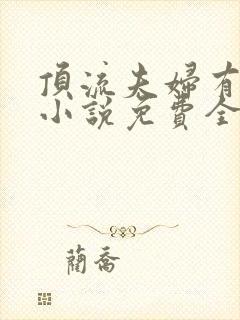 頂流夫婦有
小說免費全
藺喬